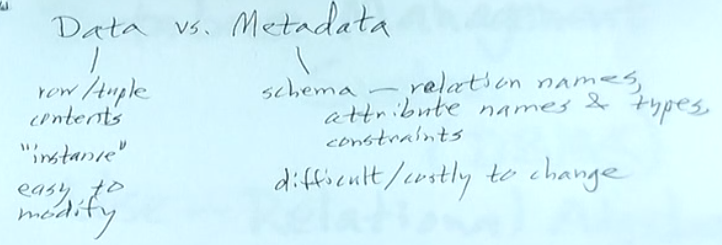 Data vs. Metadata
row/tuple
contents
"instance"
easy to
modify
schema – relation names,
attribute names & types,
constraints
difficult/costly to change